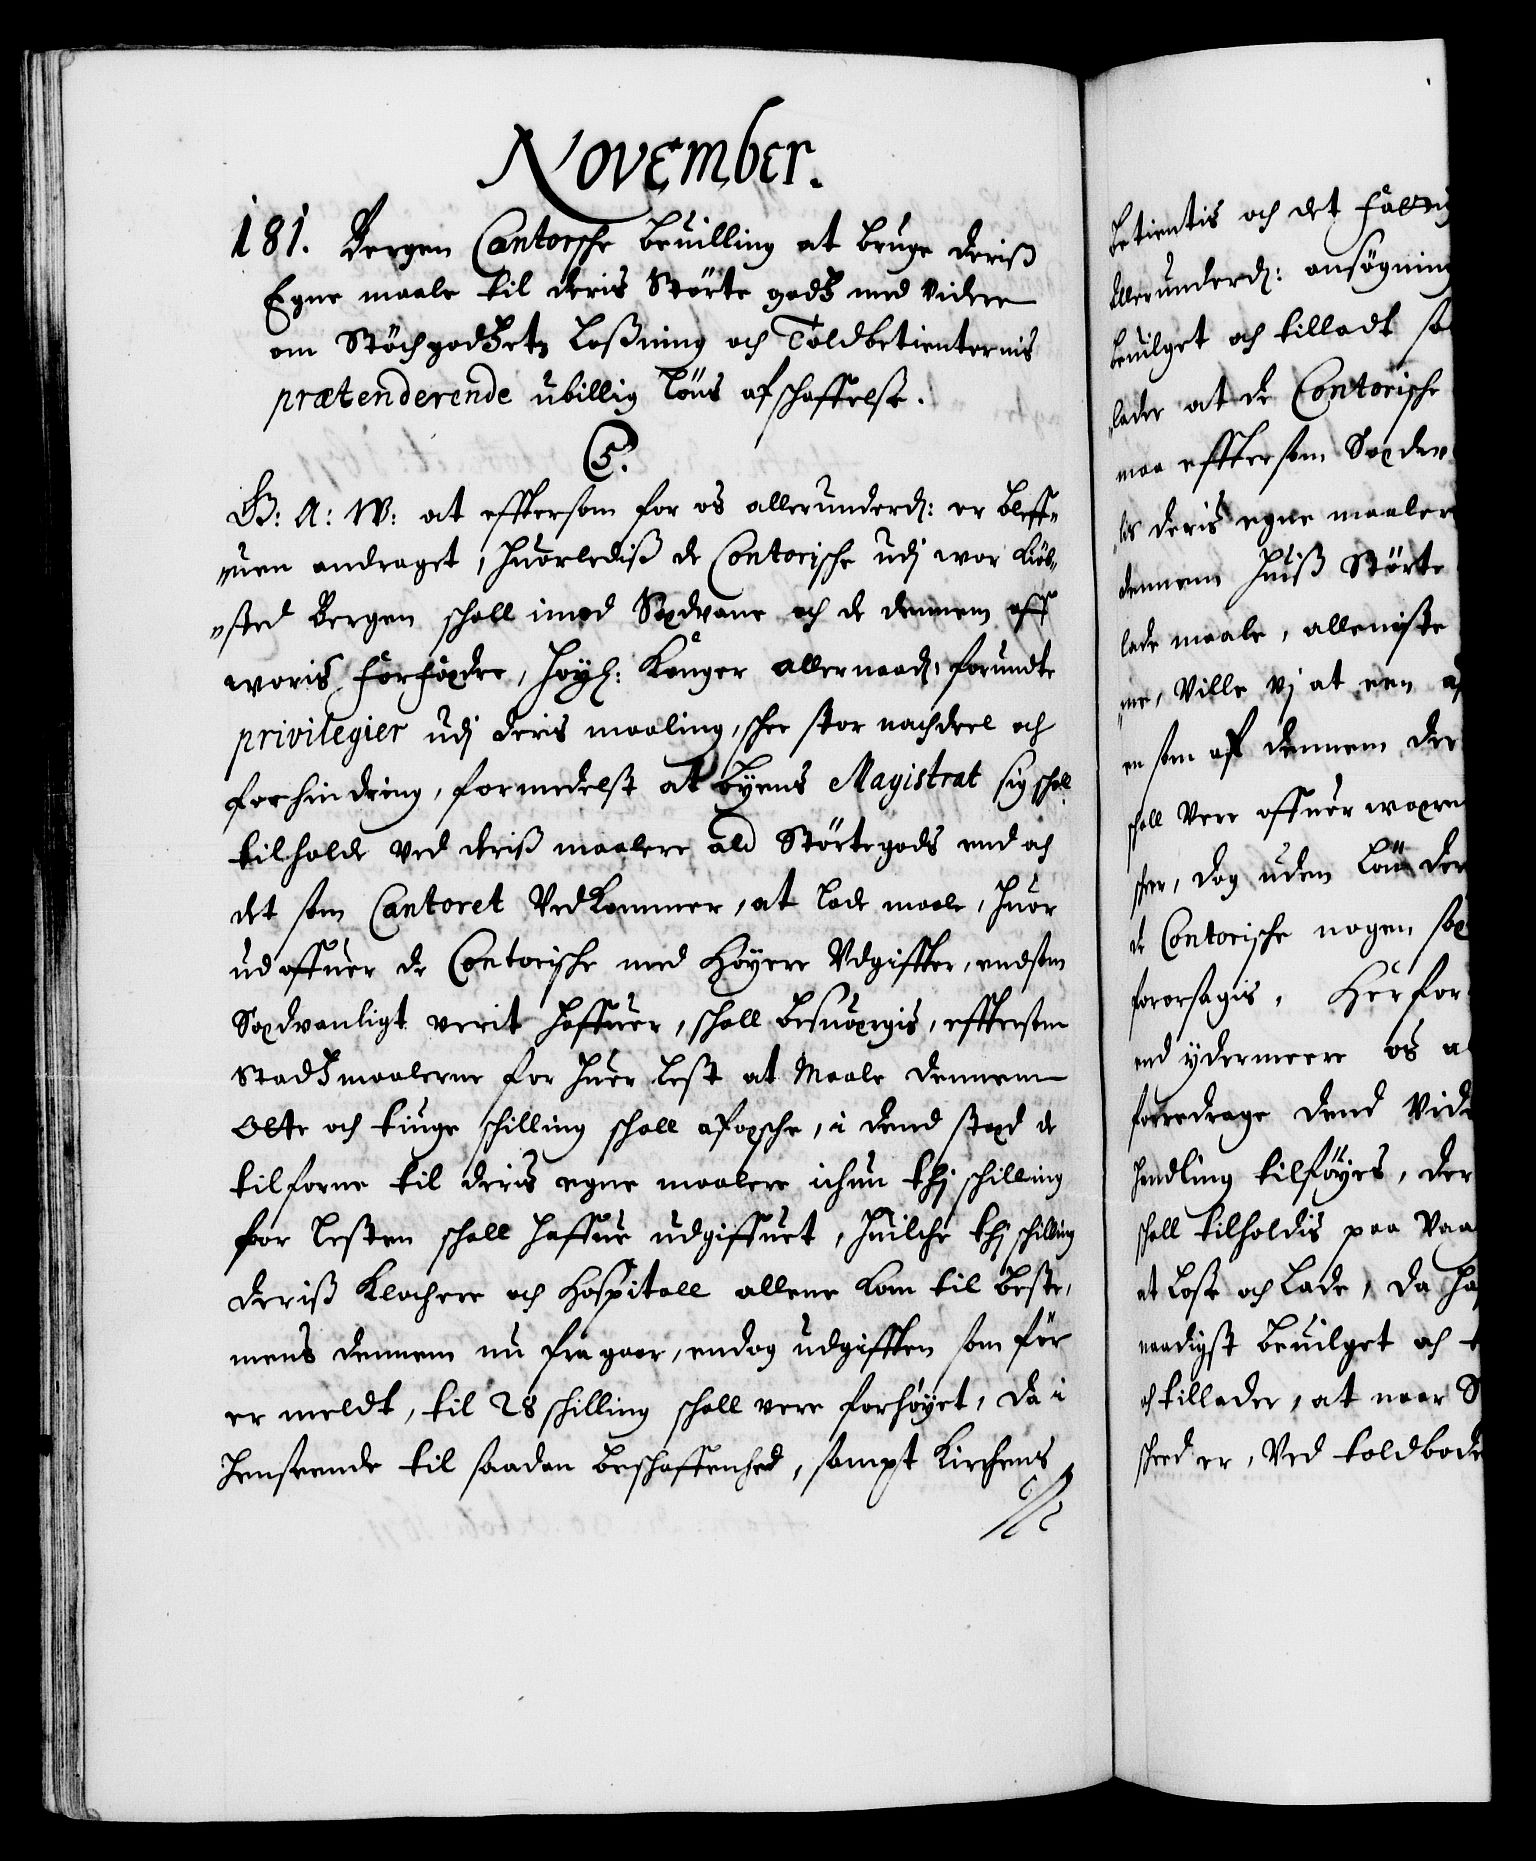 November.
181. Bergen Cantorsche beuilling at bruge deriß
Egne maale til deris Störte godß med videre
om Stöchgodßetz Loßning och Toldbetienternis
prætenderende ubillig Löns afschaffelse.
C5.
G: A: W: at efftersom for os allerunderd: er bleff-
uen andraget, huorlediß de Contorische udj wor Kiöb-
sted Bergen schall imod Sædvane och de dennem aff
woris Forfædre, Høyl: Konger allernaad: forundte
privilegier udj deris maaling, schee stor nachdeel och
forhindring, formedelst at Byens Magistrat sig schal
tilholde ved deriß maalere ald Störtegods end och
det som Cantoret Vedkommer, at lade maale, huor
udoffuer de Contorische med Høyere Udgiffter, endsom
Sædvanligt verit haffuer, schall besuærgis, efftersom
Stadßmaalerne for huer Lest at Maale dennem
Otte och tiuge schilling schall afæsche, i dend stæd de
tilforne til deris egne maalere ichun thj schilling
for Lesten schall haffue udgiffuet, huilche thj schilling
deriß Klochere och Hospitall allene kom til beste,
mens dennem nu fra gaar, endog udgifften som för
er meldt, til 28 schilling schall vere forhöyet, da i
henseende til saadan beschaffenhed, sampt Kirchens
betientis och det fatti
Allerunderd: ansögning
beuilget och tilladt sa
lader at de Contorische
maa efftersom Sædva
deris egne maaler
dennem huiß Störte
lade maale, alleniste
ne, Ville vj at een
en som af dennem der
schall Vere offuerværen
scheer, dog uden Lön der
de Contorische nogen
foraarsagis, Herfor
end ydermeere os al
forredrage dend Vid
handling tilföyes, der
schall tilholdis paa Vaa
at Losse och Lade, da ha
naadigst beuilget och t
och tillader, at naar S
scheed er, Ved toldbode